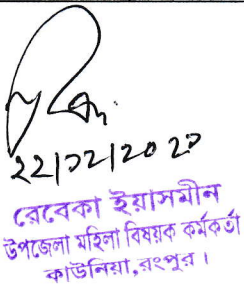 ২২/০২/২০২০
রেবেকা ইয়াসমীন
উপজেলা মহিলা বিষয়ক কর্মকর্তা
কাউনিয়া,রংপুর।